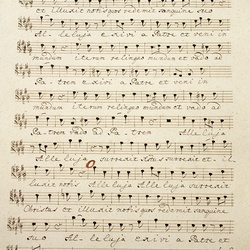 et illusit nos quos redemit sanguine suo
Alleluja exivi a Patre et veni in
mundum iterum relinquo mundum et vado ad
Patrem exivi a Patre et veni in
mundum iterum relinquo mundum et vado ad
Patrem vado ad Patrem Alle
Alleluja surrexit Christus surrexit et il
luxit nobis Alleluja Alleluja surrexit
Christus et illusit nobis quos redemit sanguine
suo Alleluja exivi a Patre et